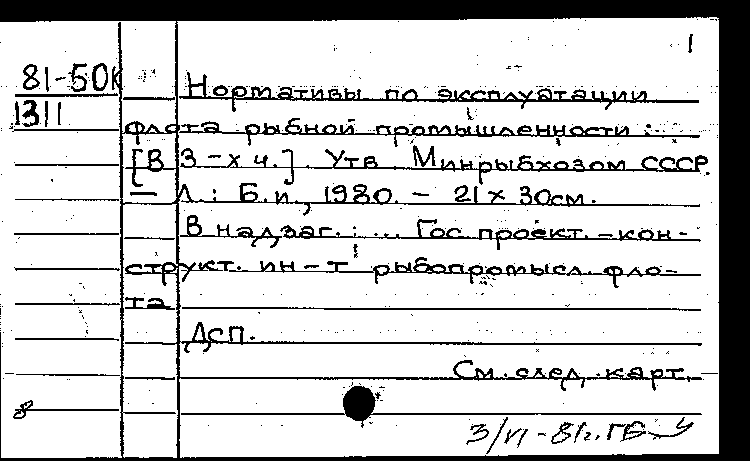 1
81-50К
1311
Нормативы по эксплуатации
флота рыбной промышленности :
[В 3-х ч.]. Утв Минрыбхозом СССР.
— Л.: Б.и., 1980. – 21 х 30см.
В надзаг.: ... Гос проект.-кон-
структ. ин-т рыбопромысл. фло-
та
ДСП.
См. след. карт.
8
3/VI-81г. ГБ